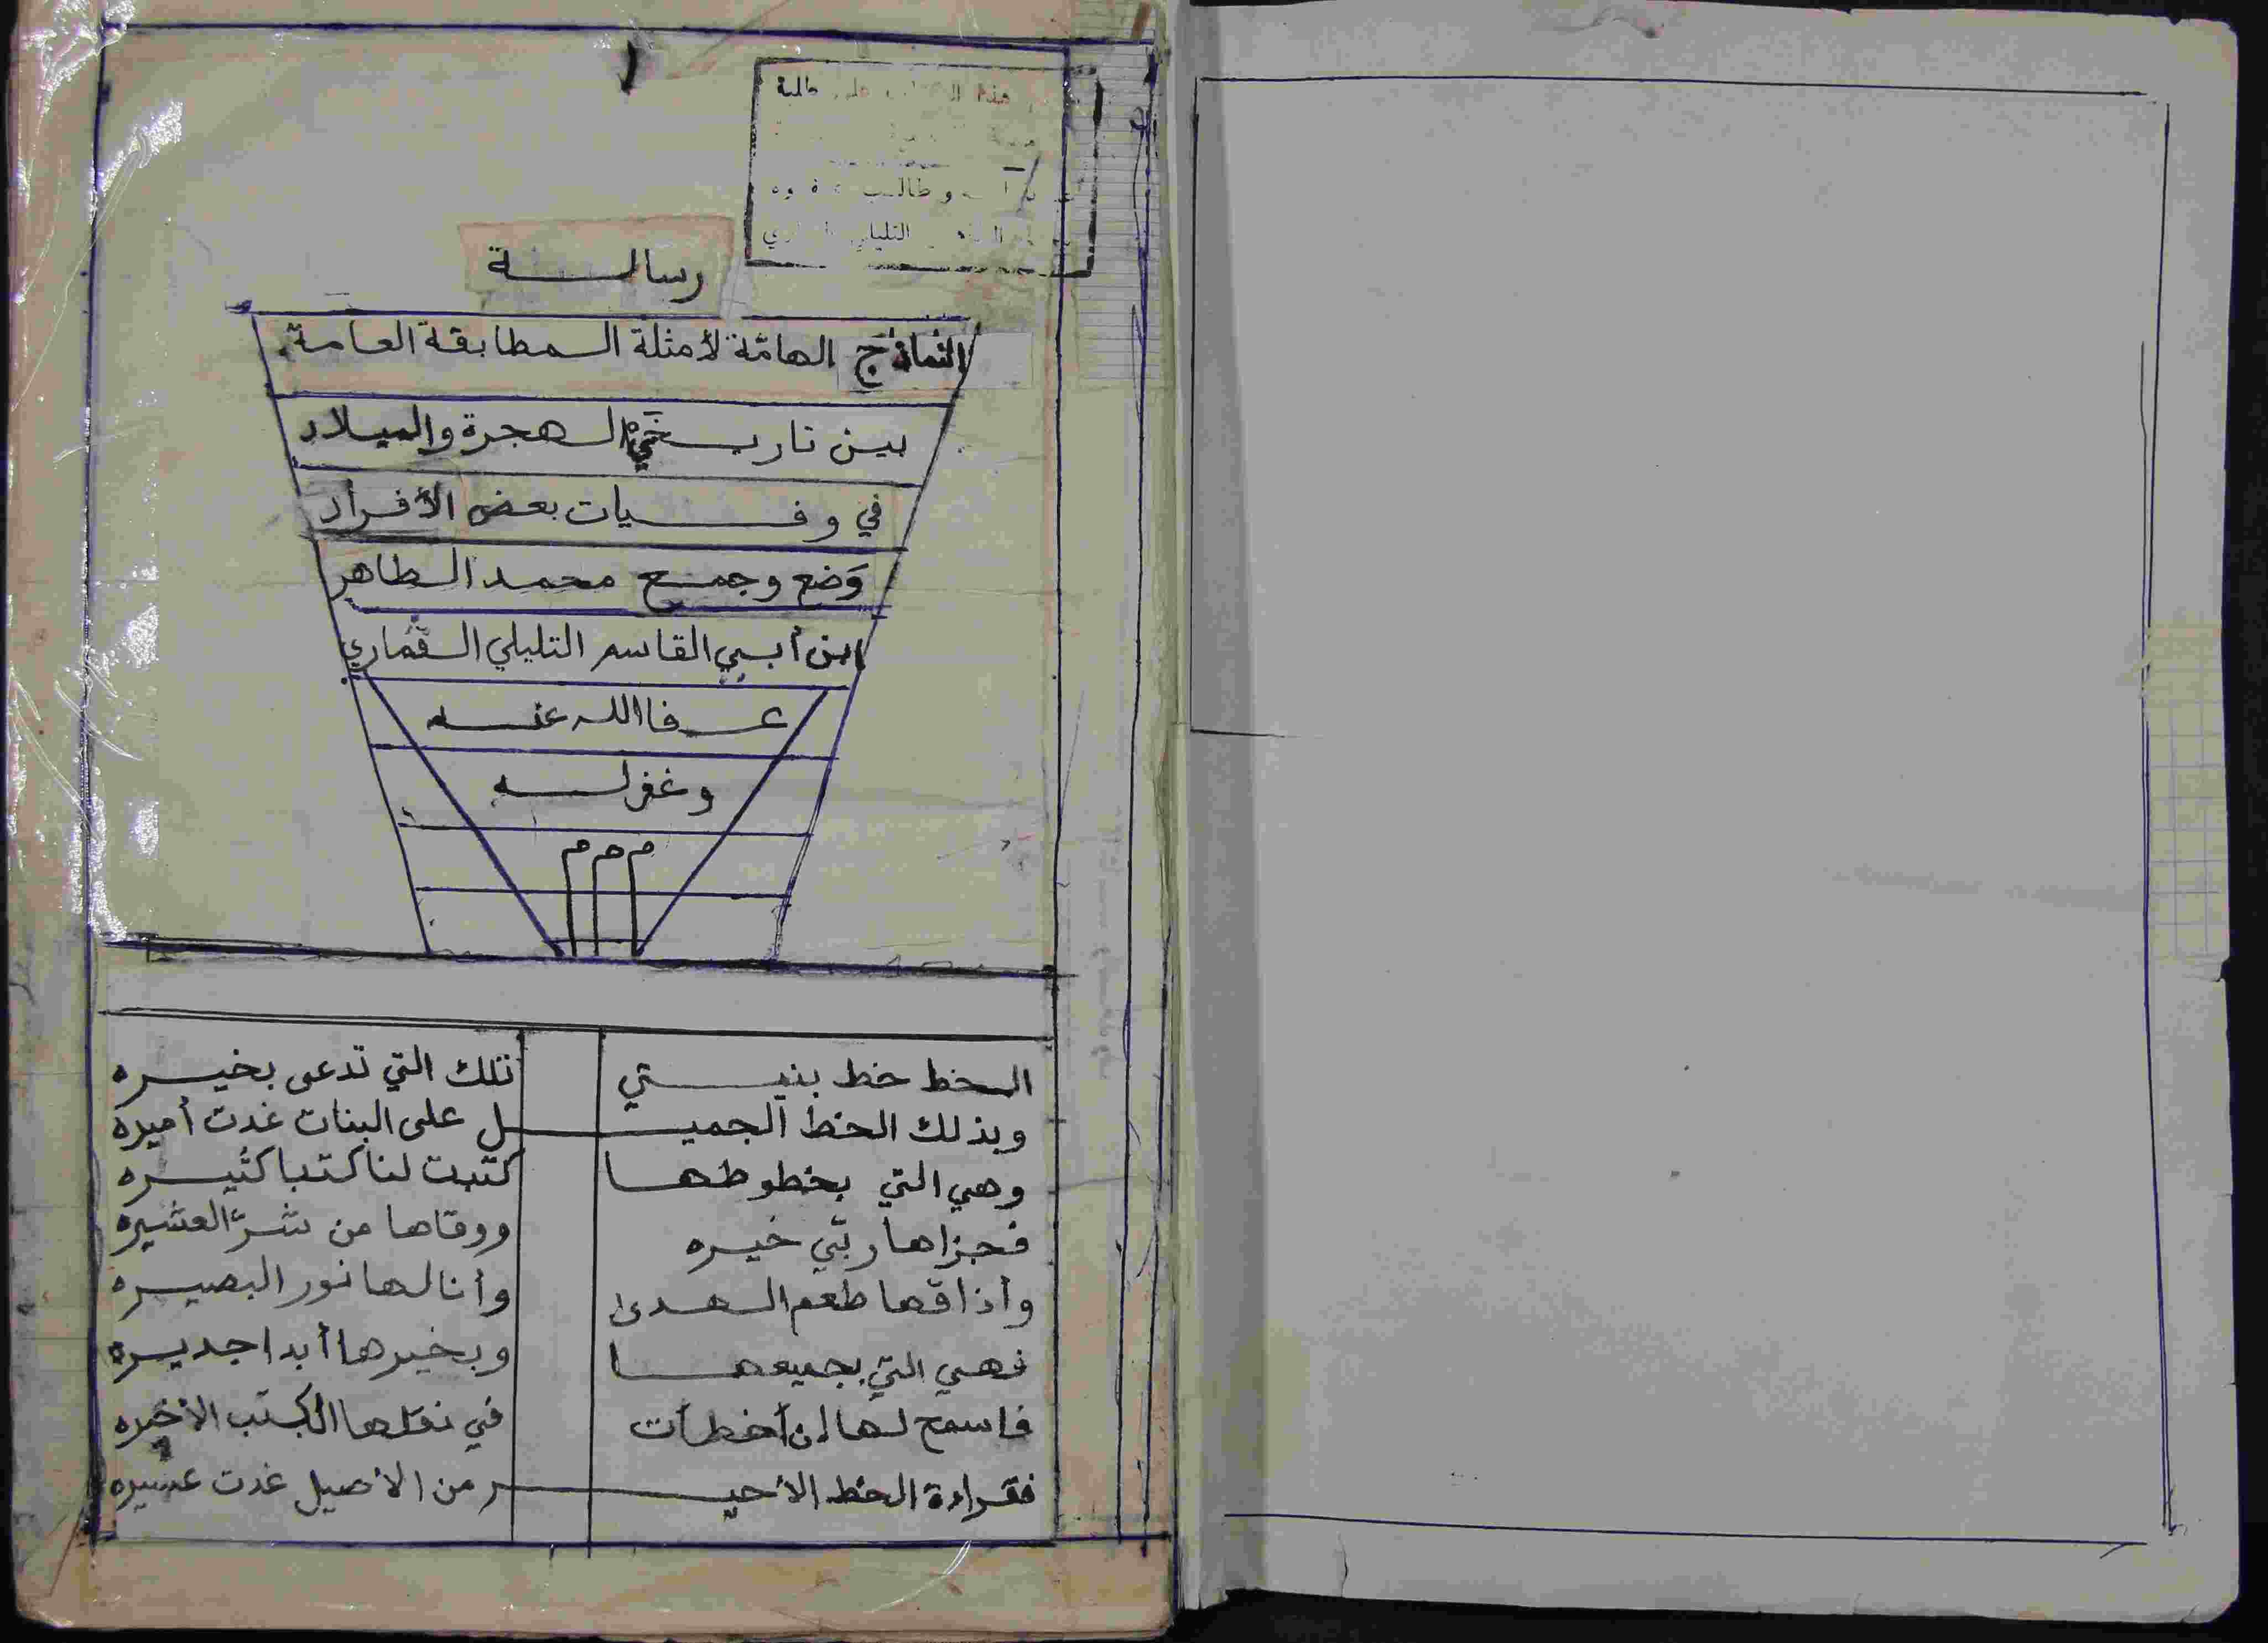 ١
هذا
طالبة
وطالب
التليلي
رسالة
النماذج الهامّة لأمثلة المطابقة العامة.
بين تاريخي الهجرة والميلاد
في وفيات بعض الأفراد
وَضع وجمع محمد الطاهر
ابن أبي القاسم التليلي القماري
عفا الله عنه
وغفر له
م م م
الخط خط بنيتي تلك التي تدعى بخيره
وبذلك الخط الجميل على البنات غدت أميرة
وهي التي بخطوطها كتبت لنا كتبا كثيره
فجزاها ربّي خيره ووقاها من شرّ العشيره
وأذاقها طعم الهدى وأنالها نور البصيره
فهي التي بجميعها وبخيرها أبدا جديره
فاسمح لها إن أخطأت في نقلها الكتب الأخيره
فقراءة الخط الأخير من الأصيل غدت عسيره